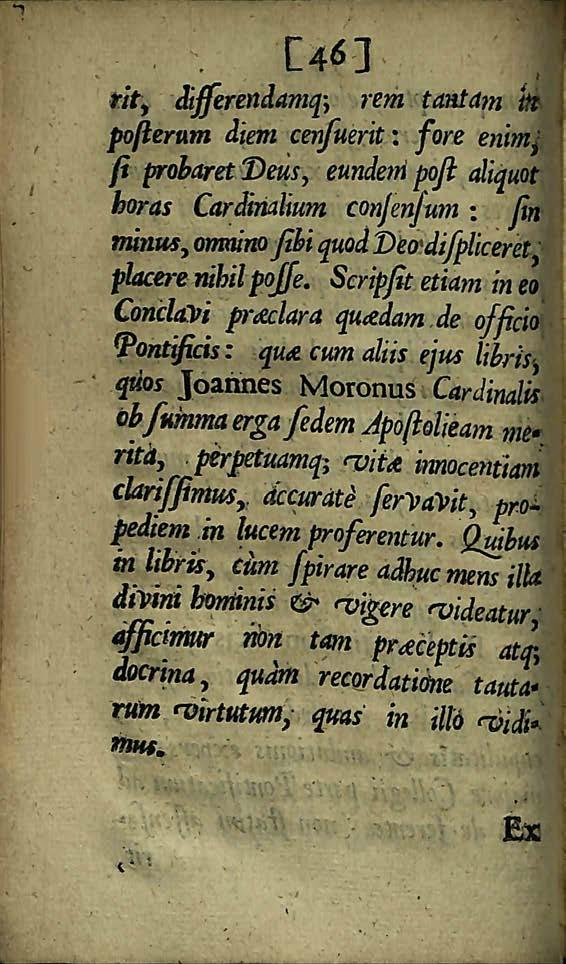 [46]
rit, differendamq; rem tantam in
poſterum diem cenſuerit: fore enim,
ſi probaret Deus, eundem poſt aliquot
horas Cardinalium conſenſum: ſin
minus, omnino ſibi quod Deo diſpliceret,
placere nihil poſſe. Scripſit etiam in eo
Conclavi præclara quædam de officio
Pontificis: quæ cum aliis ejus libris,
quos Joannes Moronus Cardinalis
ob ſumma erga ſedem Apoſtolicam me-
rita, perpetuamq; vitæ innocentiam
clariſſimus, accuratè ſervavit, pro-
pediem in lucem proferentur. Quibus
in libris, cùm ſpirare adhuc mens illa
divini hominis & vigere videatur,
afficimur non tam præceptis atq;
docrina, quàm recordatione tauta-
rum virtutum, quas in illo vidi-
mus.
Ex